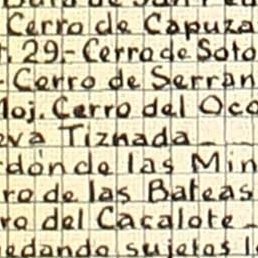 Cerro de Capuza
. 29.- Cerro de Soto
- Cerro de Serran
Moj. Cerro del Oco
eva Tiznada
rdón de las Min
ro de las Bateas
ro del Cacalote
uedando sujetos l